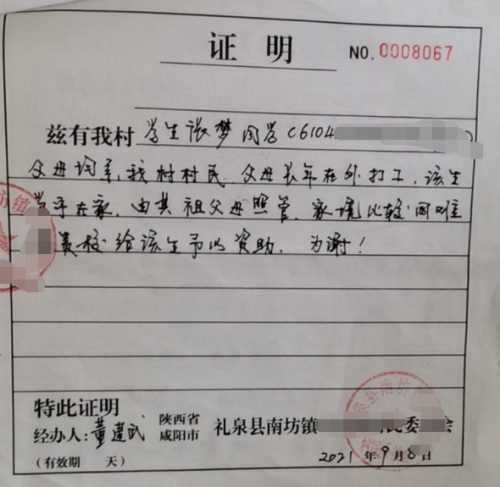 证 明
NO. 0008067
兹有我村学生张梦同学(6104
父母词系,我村村民,父母长年在外打工,该生
由其祖父母照管,家境比较困难
贵校给该生予以资助,为谢!
特此证明
经办人:董 武 陕西省咸阳市 礼泉县南坊镇 民委 会
(有效期 天) 2021 年 9 月 8 日